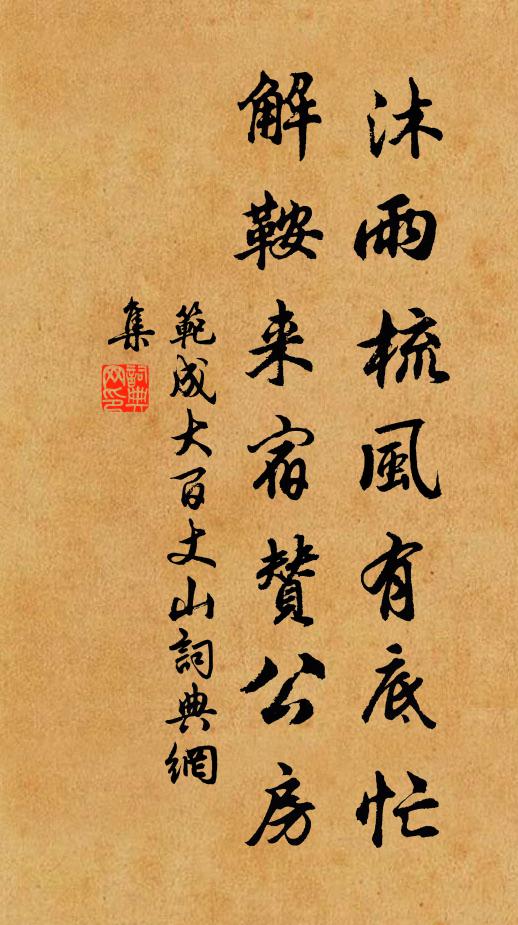 沐雨梳風有底忙
解鞍来宿贊公房
範成大百丈山詞典網
集
詞典
网印